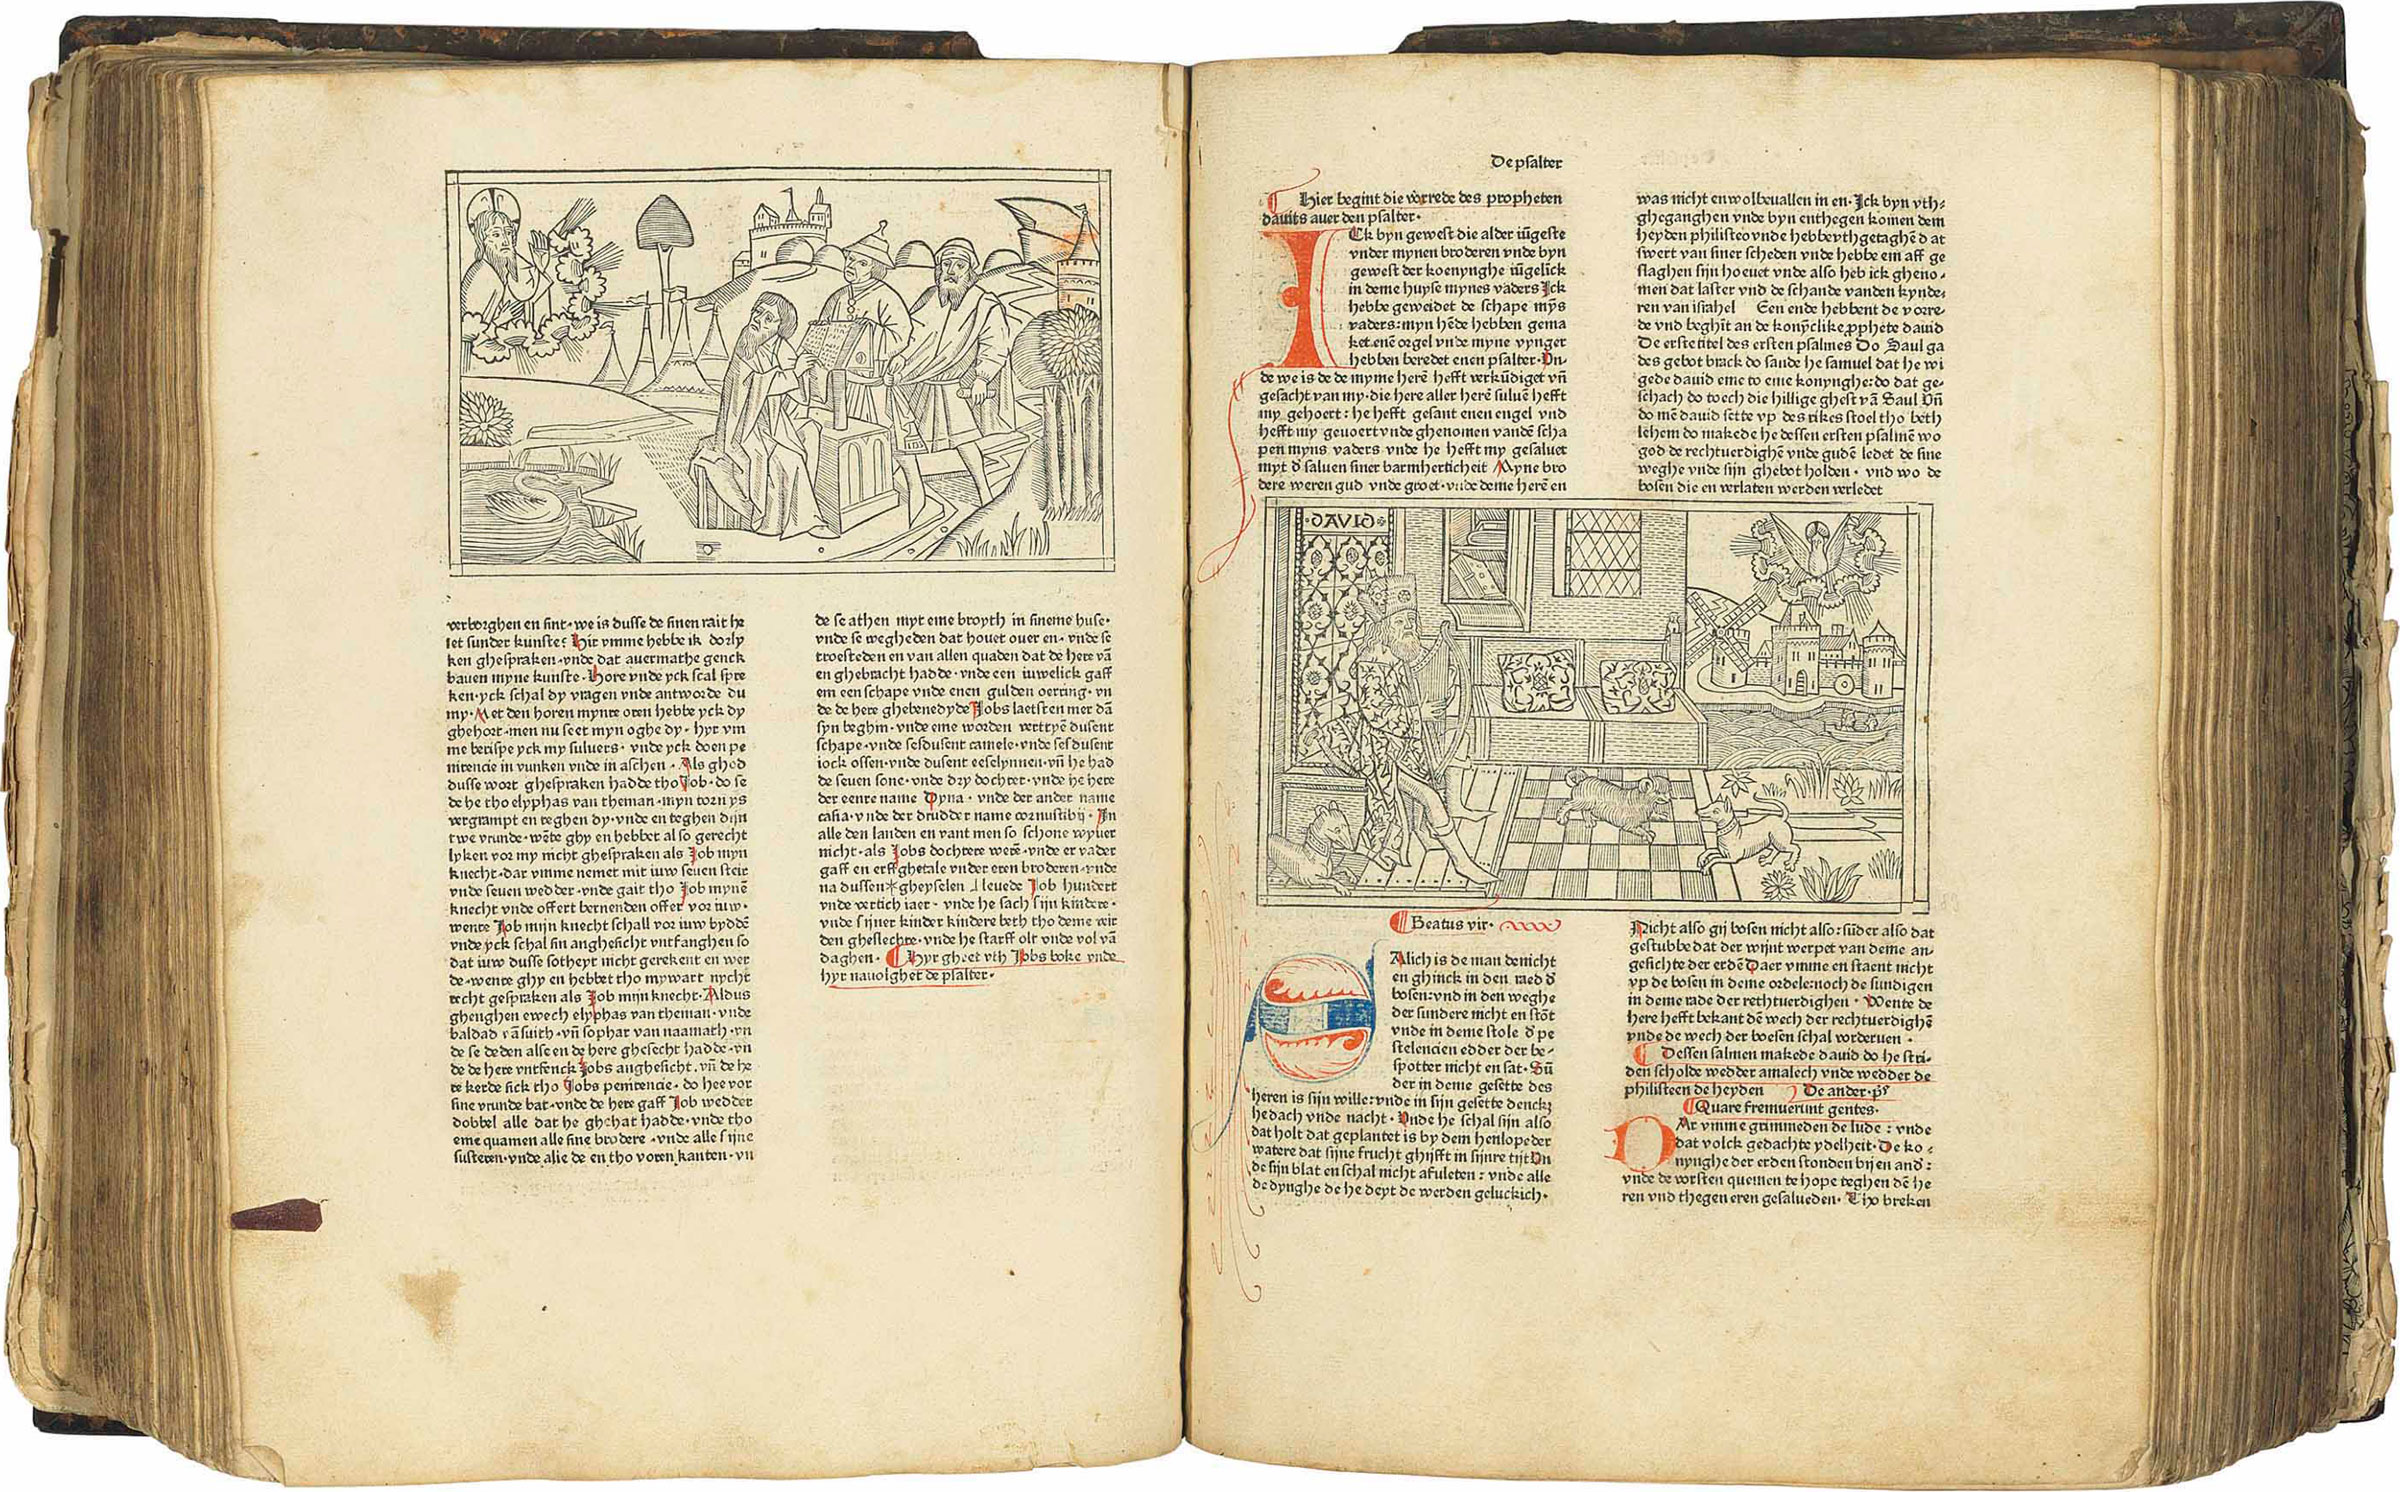 verborghen en sint·we is dusse de sinen rait he
let sunder kunste? Hir vmme hebbe ik dorly
ken ghespraken·vnde dat auermathe genck
bauen myne kunste·Hore vnde yck scal spre
ken·yck schal dy vragen vnde antworde du
my·Met den horen mynre oren hebbe yck dy
ghehort·men nu seet myn oghe dy·hyr vm
me berispe yck my suluers·vnde yck doen pe
nitencie in vunken vnde in aschen·Als ghod
dusse wort ghespraken hadde tho Job·do se
de he tho elyphas van theman·myn torn ys
vergrampt en teghen dy·vnde en teghen dijn
twe vrunde·wēte ghy en hebbet also gerecht
lyken vor my nicht ghespraken als Job myn
knecht·dar vmme nemet mit iuw seuen steir
vnde seuen wedder·vnde gait tho Job mynē
knecht vnde offert bernenden offer vor iuw·
wente Job mijn knecht schall vor iuw byddē
vnde yck schal sin anghesicht vntfanghen so
dat iuw dusse sotheyt nicht gerekent en wer
de·wente ghy en hebbet tho mywart nycht
recht gespraken als Job mijn knecht·Aldus
ghenghen ewech elyphas van theman·vnde
baldad vā suith·vn̄ sophar van naamath·vn
de se deden alse en de here ghesecht hadde·vn
de de here vntfenck Jobs anghesicht·vn̄ de he
re kerde sick tho Jobs penitencie·do hee vor
sine vrunde bat·vnde de here gaff Job wedder
dobbel alle dat he ghehat hadde·vnde tho
eme quamen alle sine brodere·vnde alle sijne
susteren·vnde alle de en tho voren kanten·vn
de se athen myt eme broyth in sineme huse·
vnde se wegheden dat houet ouer en·vnde se
troesteden en van allen quaden dat de here vā
en ghebracht hadde·vnde een iuwelick gaff
em een schape vnde enen gulden oerring·vn
de de here ghebenedyde Jobs laetsten mer dā
syn beghin·vnde eme worden verttyē dusent
schape·vnde sesdusent camele·vnde sesdusent
iock ossen·vnde dusent eeselynnen·vn̄ he had
de seuen sone·vnde dry dochter·vnde he hete
der eenre name Dyna·vnde der ander name
casia·vnde der drudder name cornustibij·In
alle den landen en vant men so schone wyuer
nicht·als Jobs dochtere werē·vnde er vader
gaff en erffghetale vnder eren broderen·vnde
na dussen gheyselen leuede Job hundert
vnde vertich iaer·vnde he sach sijn kindere·
vnde sijner kinder kindere beth tho deme veir
den gheslechte·vnde he starff olt vnde vol vā
daghen· Hyr gheet vth Jobs boke vnde
hyr nauolghet de psalter·
De psalter
Hier begint die vorrede des propheten
dauits auer den psalter·
ICk byn gewest die alder iūgeste
vnder mynen broderen vnde byn
gewest der koenynghe iūgelick
in deme huyse mynes vaders Jck
hebbe geweidet de schape myns
vaders:myn hēde hebben gema
ket enē orgel vnde myne vynger
hebben beredet enen psalter·Vn
de we is de de myme herē hefft verkūdiget vn̄
gesacht van my·die here aller herē suluē hefft
my gehoert:he hefft gesant enen engel vnd
hefft my geuoert vnde ghenomen vandē scha
pen myns vaders vnde he hefft my gesaluet
myt d̓ saluen siner barmherticheit Myne bro
dere weren gud vnde groet·vnde deme herē en
was nicht en wolbeuallen in en·Jck byn vth-
gheganghen vnde byn enthegen komen dem
heyden philisteo vnde hebbe vthgetaghē dat
swert van siner scheden vnde hebbe em aff ge
slaghen sijn hoeuet vnde also heb ick gheno-
men dat laster vnd de schande vanden kynde-
ren van israhel Een ende hebbent de vorre-
de vnd beghīt an de konȳclike prophete dauid
De erste titel des ersten psalmes Do Saul ga
des gebot brack do sande he samuel dat he wi
gede dauid eme to eme konynghe:do dat ge-
schach do toech die hillige ghest vā Saul Vn̄
do mē dauid sette vp des rikes stoel tho beth
lehem do makede he dessen ersten psalmē wo
god de rechtuerdighē vnde gudē ledet de sine
weghe vnde sijn ghebot holden·vnd wo de
bosen die en verlaten werden verledet
DAVID
Beatus vir·
SAlich is de man de nicht
en ghinck in den raed d̓
bosen:vnd in den weghe
der sundere nicht en stōt
vnde in deme stole d̓ pe
stelencien edder der be-
spotter nicht en sat·Sū
der in deme gesette des
heren is sijn wille:vnde in sijn gesette dencke
he dach vnde nacht·Vnde he schal sijn also
dat holt dat geplantet is by dem henloepeder
watere dat sijne frucht ghifft in sijnre tijt Vn
de sijn blat en schal nicht afuleten:vnde alle
de dynghe de he deyt de werden geluckich·
Nicht also gij bosen nicht also:sūder also dat
gestubbe dat der wijnt werpet van deme an-
gesichte der erdē Daer vmme en staent nicht
vp de bosen in deme ordele:noch de sundigen
in deme rade der rechtuerdighen·Wente de
here hefft bekant dē wech der rechtuerdighē
vnde de wech der boesen schal vorderuen·
Dessen salmen makede dauid do he stri-
den scholde wedder amalech vnde wedder de
philisteen de heyden De ander ps̄
Quare fremuerunt gentes·
DAr vmme grimmeden de lude:vnde
dat volck gedachte ydelheit·De ko-
nynghe der erden stonden bij en and̓:
vnde de vorsten quemen to hope teghen dē he
ren vnd thegen eren gesalueden·Tho breken